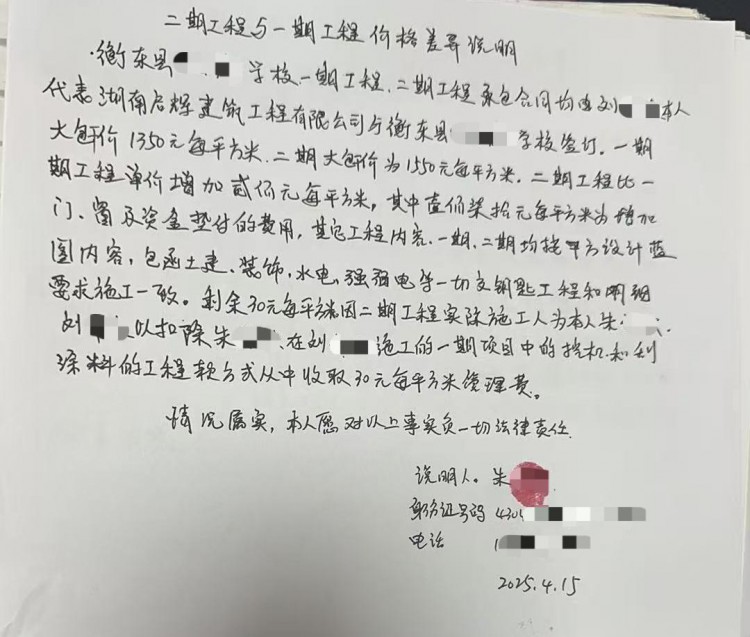 二期工程与一期工程价格差异说明
·衡东县 学校一期工程.二期工程承包合同均由刘 本人
代表湖南启辉建筑工程有限公司与衡东县 学校签订.一期
大包干价1350元每平方米.二期大包干价为1550元每平方米.二期工程比一
期工程单价增加贰佰元每平方米,其中壹佰柒拾元每平方米为增加
门、窗及资金垫付的费用,其它工程内容.一期.二期均按甲方设计蓝
图内容,包函土建、装饰,水电,强弱电等一切交钥匙工程和
要求施工一致。剩余30元每平方米因二期工程实际施工人为本人朱
刘 以扣除朱 .在刘 施工的一期项目中的挖机和
涂料的工程款方式从中收取30元每平方米管理费。
情况属实,本人愿对以上事实负一切法律责任.
说明人.朱
身份证号码 430
电话 1
2025.4.15